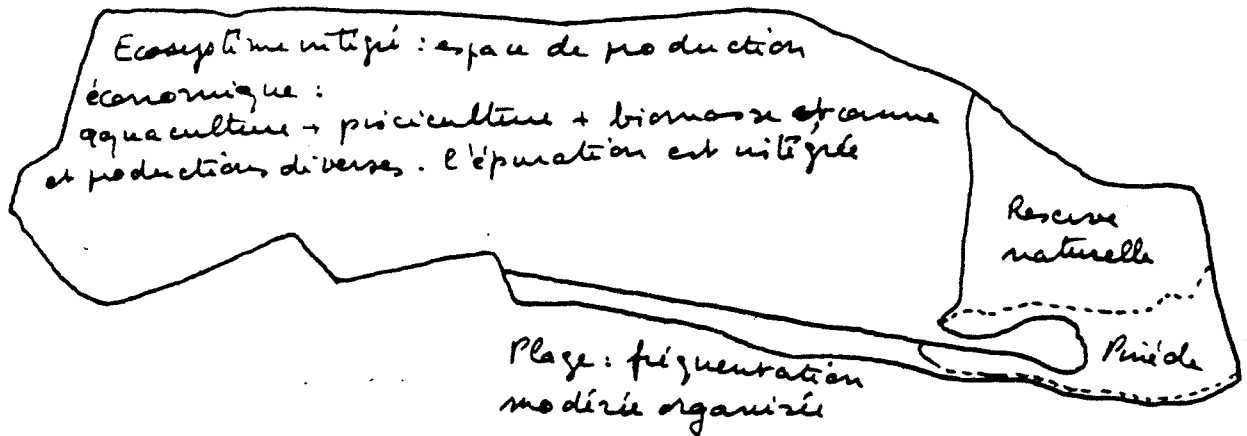 Ecosystème intégré : espace de production
économique :
aquaculture + pisciculture + biomasse et canne
et productions diverses. l'épuration est intégrée
Réserve
naturelle
Pinède
Plage : fréquentation
modérée organisée